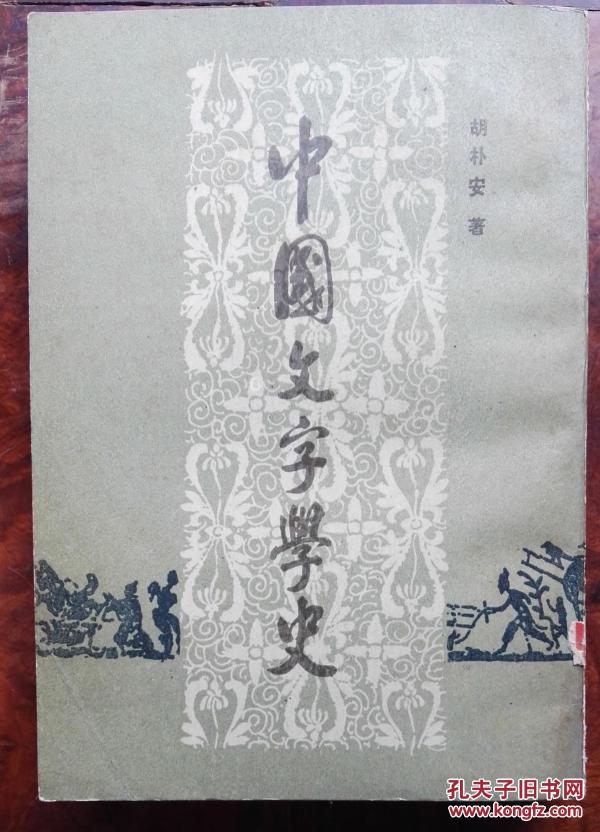 胡朴安 著
中國文字學史
孔夫子旧书网
www.kongfz.com